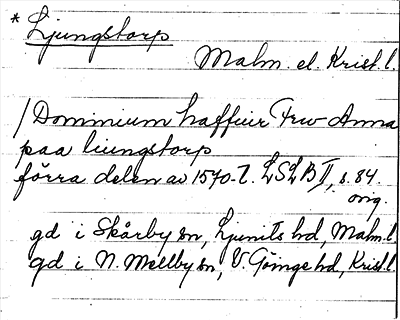 * Ljungstorp
Malm. el. Krist. l.
/Dominium haffuir Frw Anna
paa liungstorp
förra delen av 1570-t. LSLB II, s. 84.
orig.
gd i Skårby sn, Ljunits hd, Malm. l.
gd i N. Mellby sn, V. Göinge hd, Krist. l.